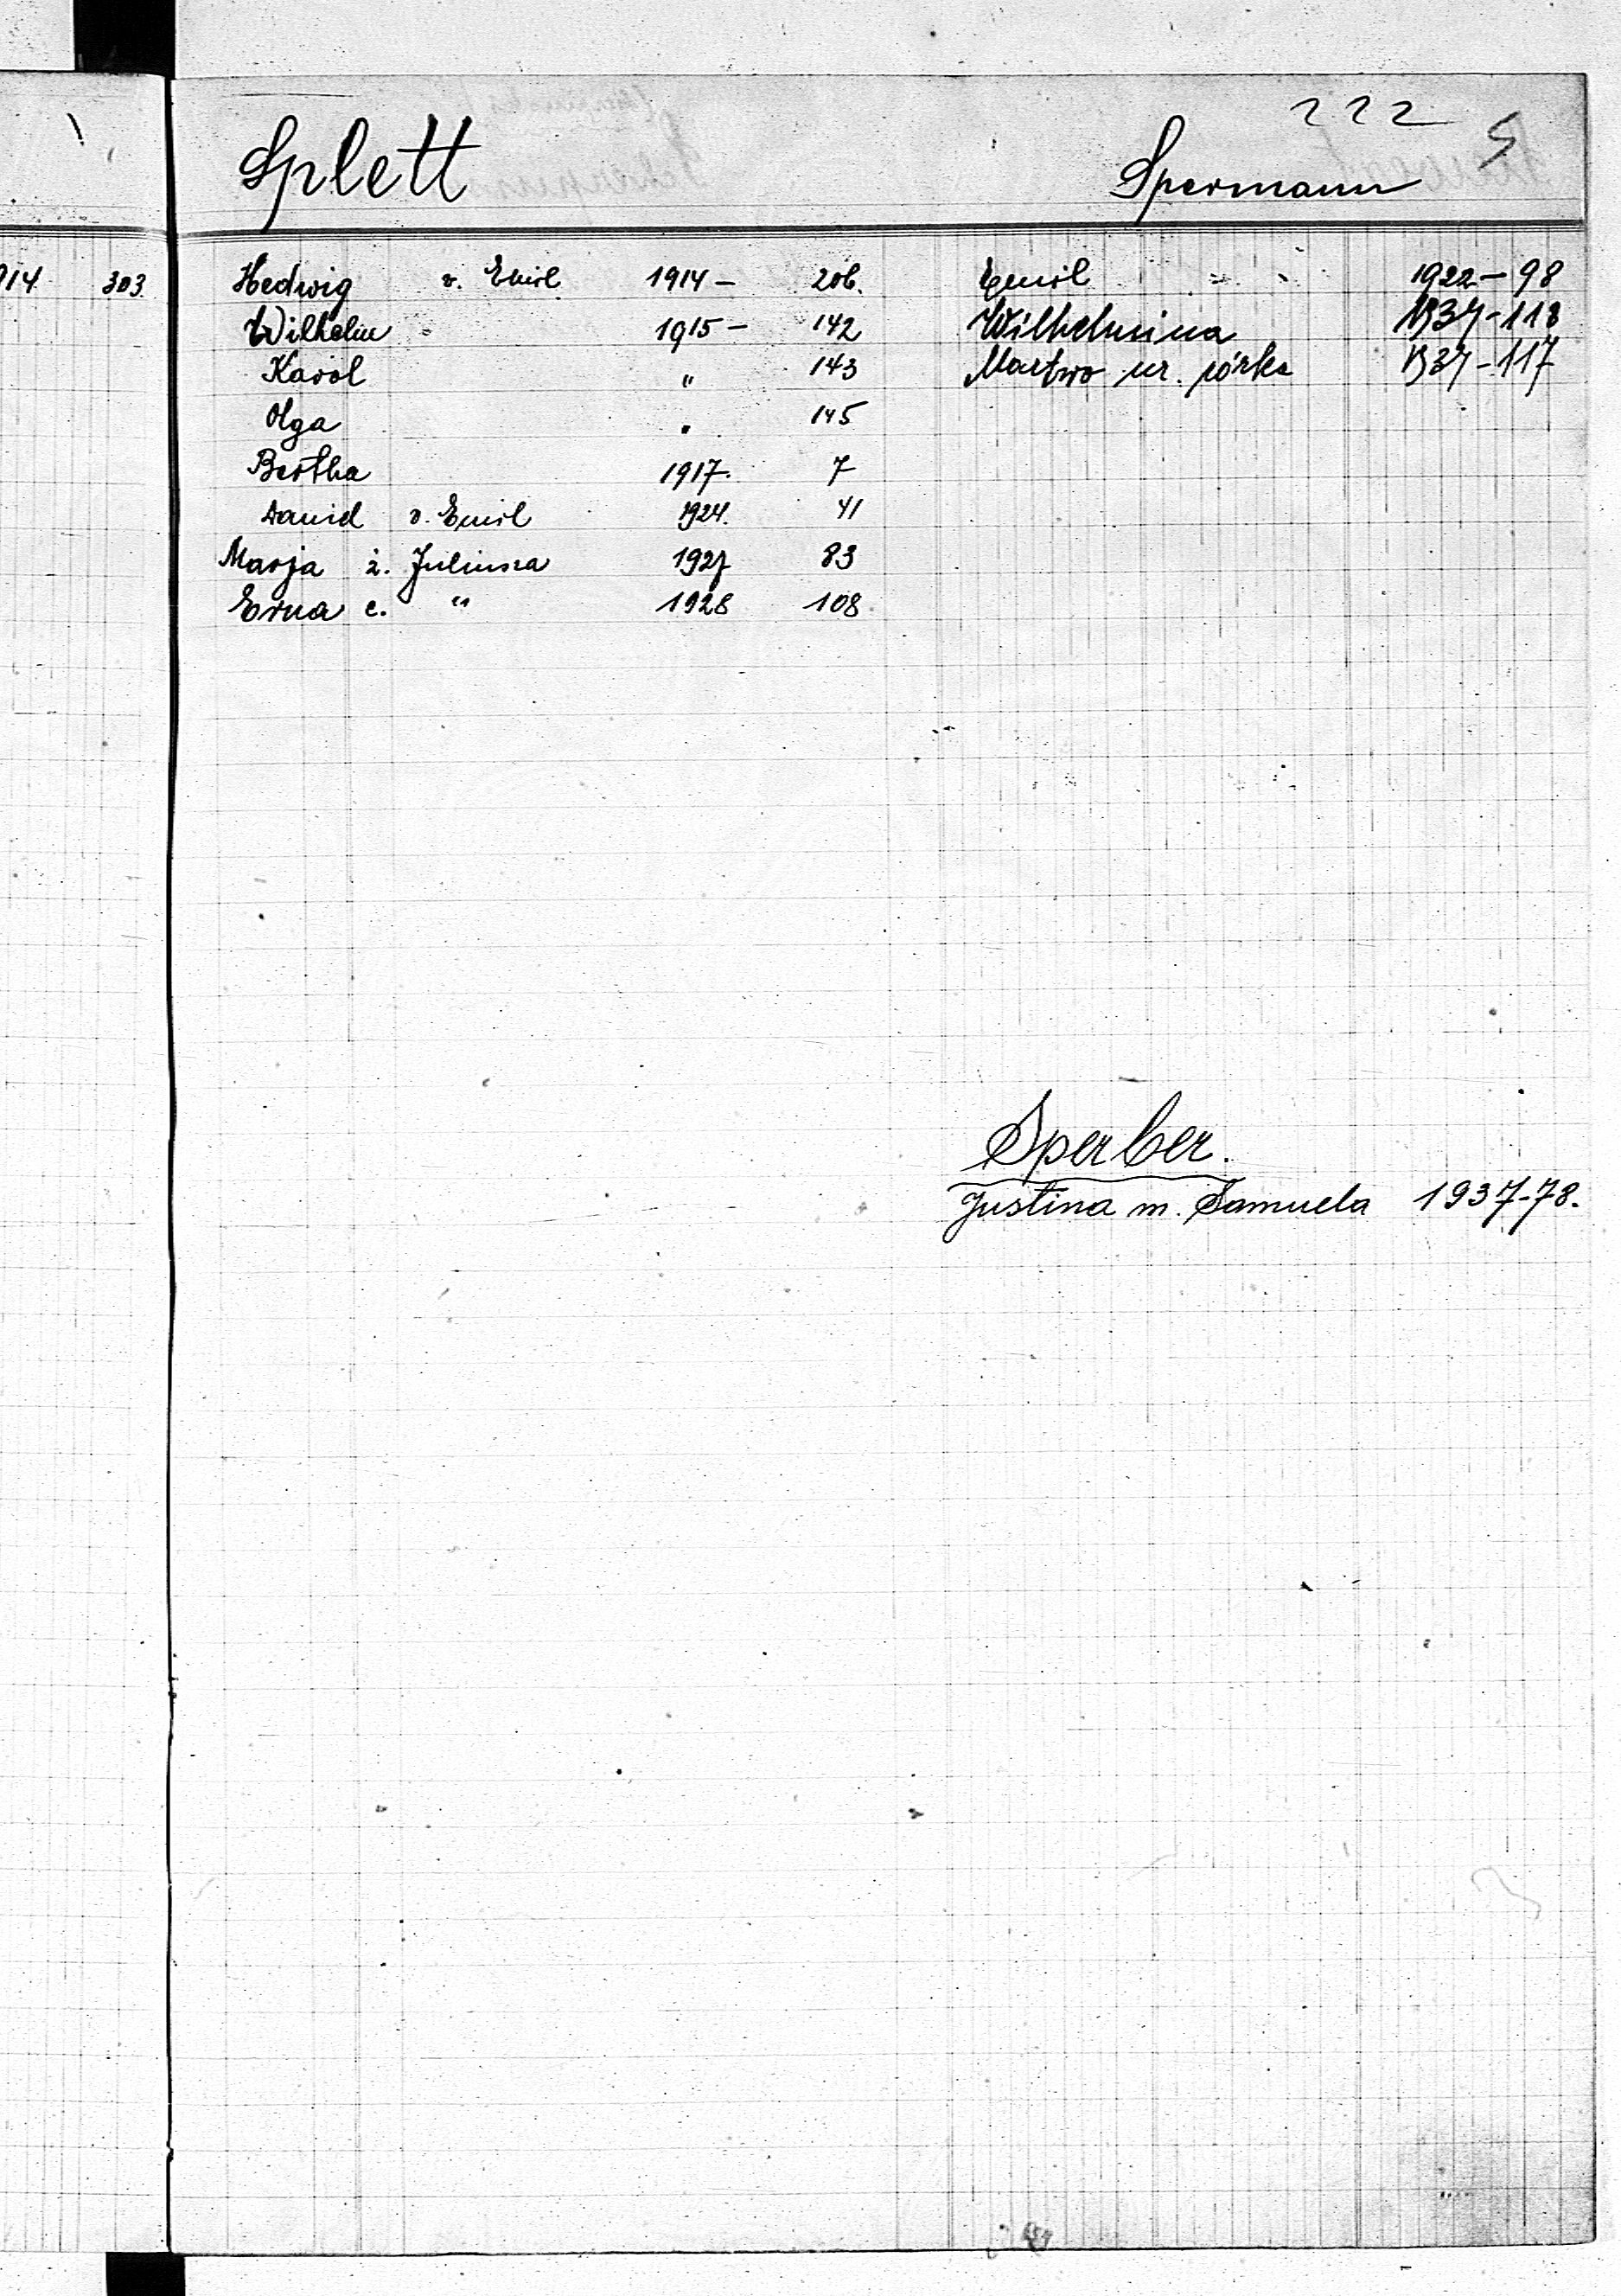 222 S
Splett
Spermann
914 303.
Hedwig v. Emil 1914 — 206.
Wilhelm " 1915 — 142
Karol " 143
Olga " 145
Bertha 1917. 7
Dawid v. Emil 1924. 41
Marja ż. Juliusza 1927 83
Erna c. " 1928 108
Emil 1922 — 98
Wilhelmina 1937 - 118
Martwo ur. córka 1937 - 117
Sperber.
Justina m. Samuela 1937-78.